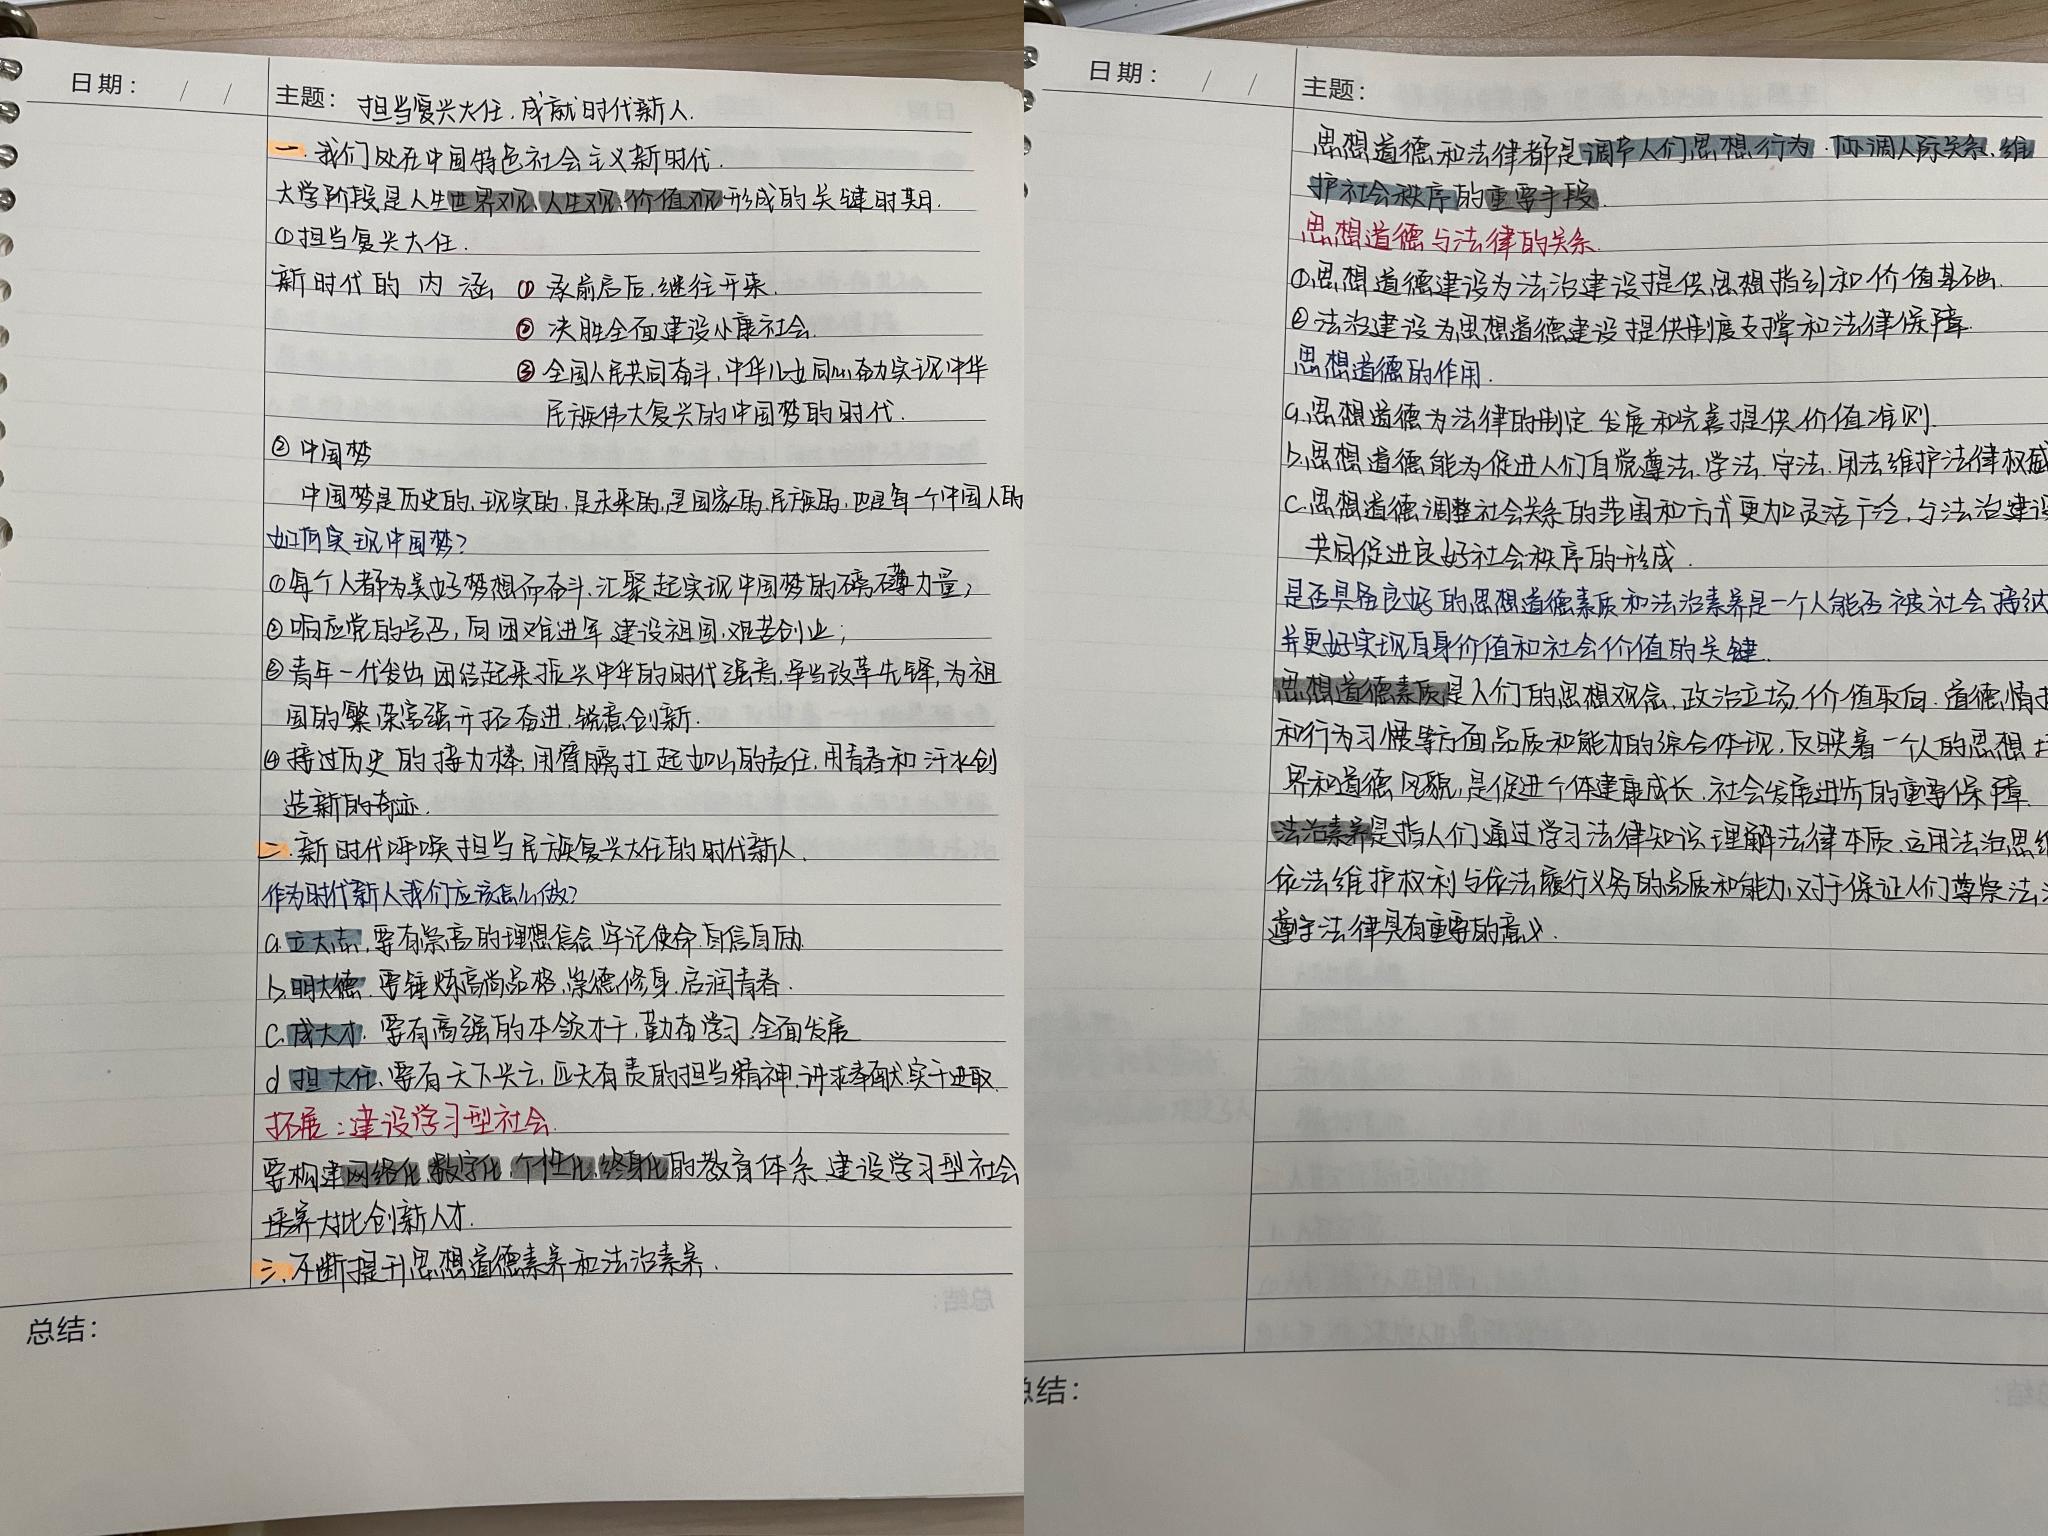 日期： / /
主题： 担当复兴大任，成就时代新人.
一. 我们处在中国特色社会主义新时代.
大学阶段是人生世界观、人生观、价值观形成的关键时期.
①担当复兴大任.
新时代的内涵 ① 承前启后，继往开来.
② 决胜全面建设小康社会.
③ 全国人民共同奋斗，中华儿女同心奋力实现中华
民族伟大复兴的中国梦的时代.
② 中国梦
中国梦是历史的，现实的，是未来的，是国家的、民族的，也是每一个中国人的
如何实现中国梦？
①每个人都为美好梦想而奋斗，汇聚起实现中国梦的磅礴力量；
②响应党的号召，向困难进军 建设祖国，艰苦创业；
③青年一代发出团结起来，振兴中华的时代强音，争当改革先锋，为祖
国的繁荣富强开拓奋进，锐意创新.
④接过历史的接力棒，用臂膀扛起如山的责任，用青春和汗水创
造新的奇迹.
二. 新时代呼唤担当民族复兴大任的时代新人.
作为时代新人我们应该怎么做？
a.立大志，要有崇高的理想信念 牢记使命，自信自励
b.明大德，要锤炼高尚品格，崇德修身，启润青春.
c.成大才，要有高强的本领才干，勤奋学习，全面发展
d 担大任，要有天下兴亡，匹夫有责的担当精神，讲求奉献，实干进取.
拓展：建设学习型社会.
要构建网络化、数字化、个性化、终身化的教育体系，建设学习型社会
培养大批创新人才.
三、不断提升思想道德素养和法治素养.
总结：
日期： / /
主题：
思想道德和法律都是调节人们思想行为、协调人际关系、维
护社会秩序的重要手段.
思想道德与法律的关系.
①思想道德建设为法治建设提供思想指引和价值基础.
②法治建设为思想道德建设提供制度支撑和法律保障.
思想道德的作用.
a.思想道德为法律的制定 发展和完善提供价值准则.
b.思想道德能为促进人们自觉尊法、学法、守法、用法维护法律权威
c.思想道德调整社会关系的范围和方式更加灵活广泛，与法治建设
共同促进良好社会秩序的形成.
是否具备良好的思想道德素质和法治素养是一个人能否被社会接纳
并更好实现自身价值和社会价值的关键.
思想道德素质是人们的思想观念，政治立场、价值取向、道德情操
和行为习惯等方面品质和能力的综合体现，反映着一个人的思想
界和道德风貌，是促进个体健康成长、社会发展进步的重要保障.
法治素养是指人们通过学习法律知识、理解法律本质、运用法治思维
依法维护权利与依法履行义务的品质和能力，对于保证人们尊崇法
遵守法律具有重要的意义.
总结：